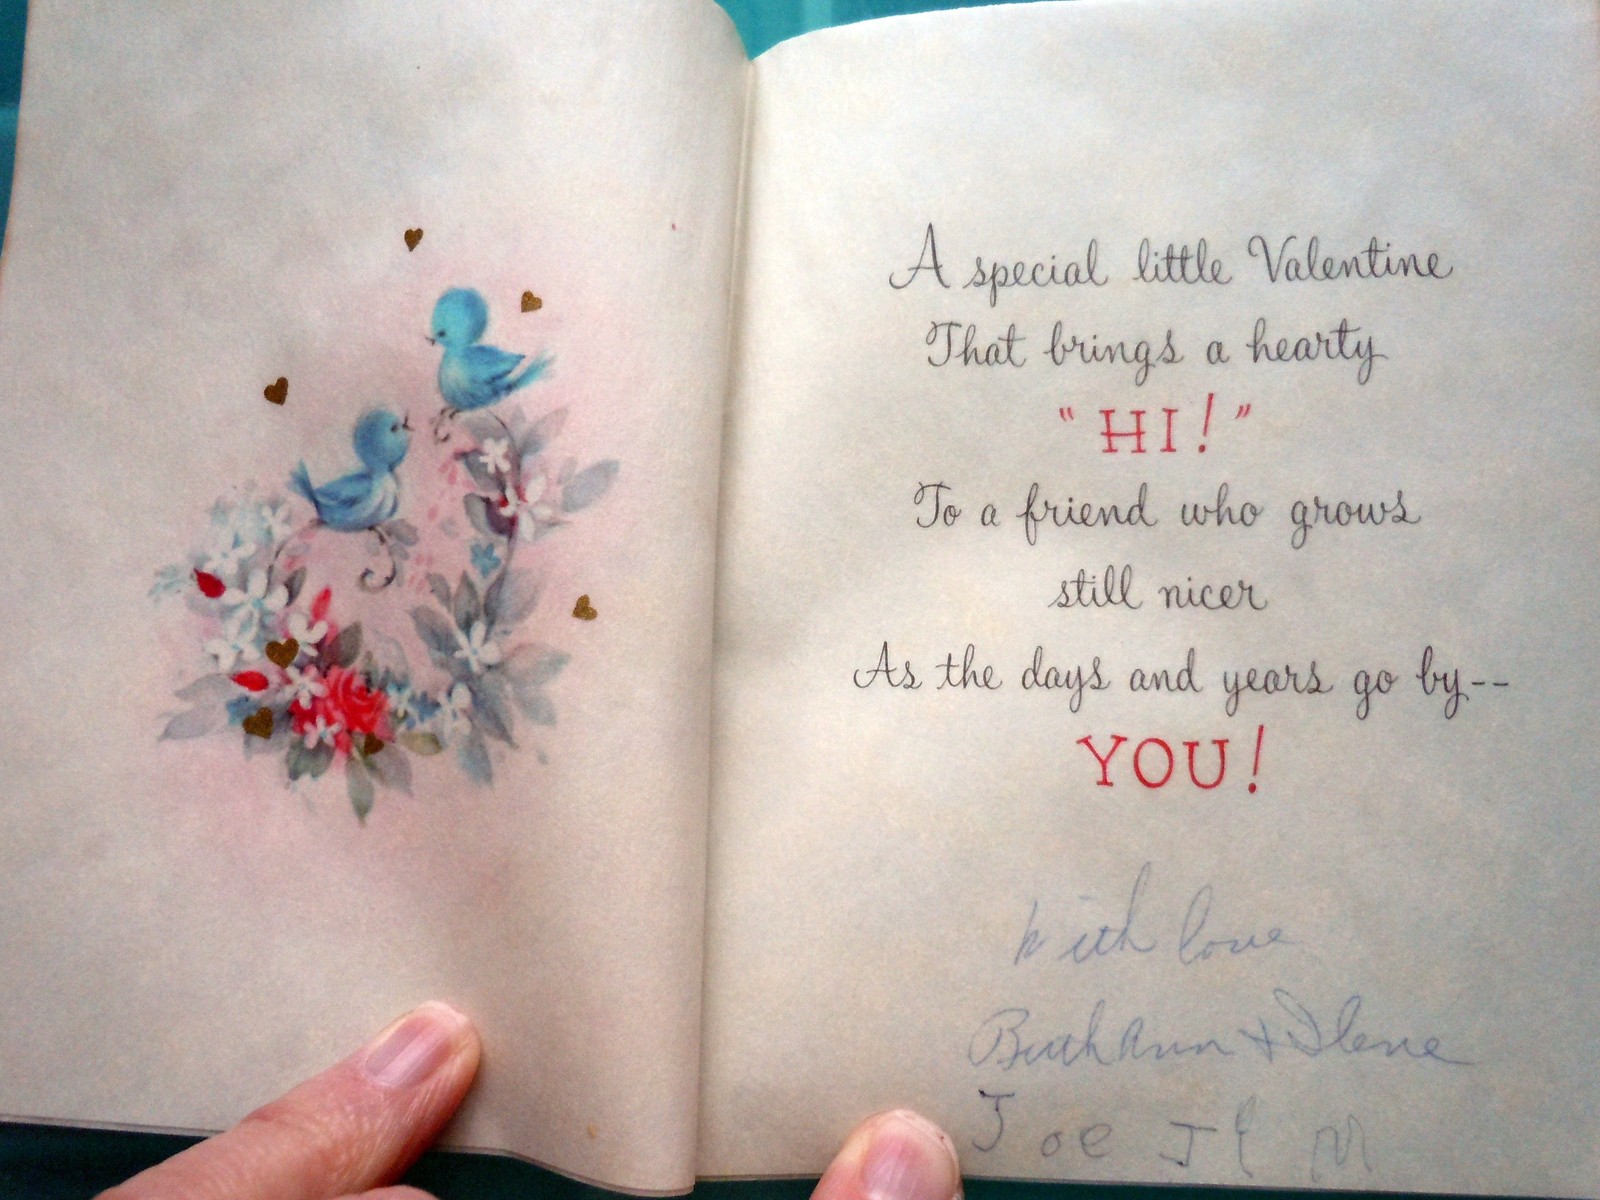 A special little Valentine
That brings a hearty
"HI!"
To a friend who grows
still nicer
As the days and years go by--
YOU!
With love
Ruth Ann + Ilene
Joe